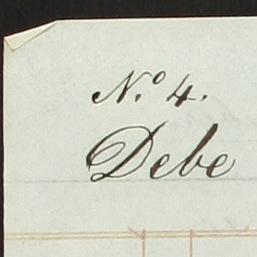 N.º 4.
Debe